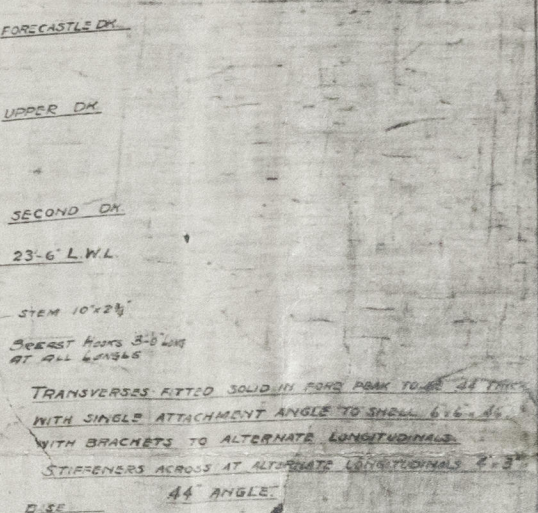 FORECASTLE DK.
UPPER DK.
SECOND DK
23'-6" L.W.L.
STEM 10"x2¾"
BREAST HOOKS 3'-0" LONG
AT ALL LONGLS
TRANSVERSES FITTED SOLID IN FORE PEAK TO BE .44 THICK
WITH SINGLE ATTACHMENT ANGLE TO SHELL 6x6x.46.
WITH BRACKETS TO ALTERNATE LONGITUDINALS.
STIFFENERS ACROSS AT ALTERNATE LONGITUDINALS 4"x3"x
.44" ANGLE.
BASE